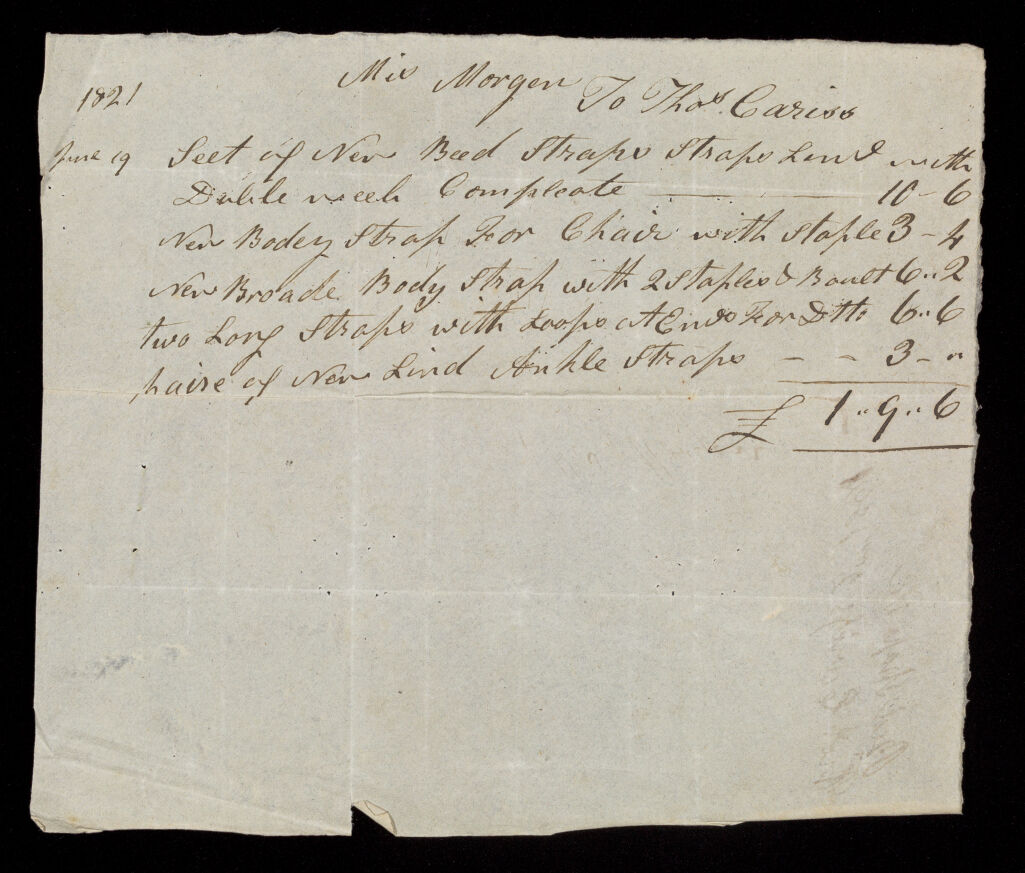 1821 Mis Morgen To Thos. Cariss
June 19 Seet of New Beed Straps Straps Lind with
Duble neek Compleate 10 - 6
New Bodey Strap For Chair with Staple 3 - 4
New Broade Body Strap with 2 Staples & Boult 6 .. 2
two Long Straps with Loops at Ends For Ditto 6 .. 6
paire of New Lind Ankle Straps - - 3 - "
£ 1 .. 9 .. 6